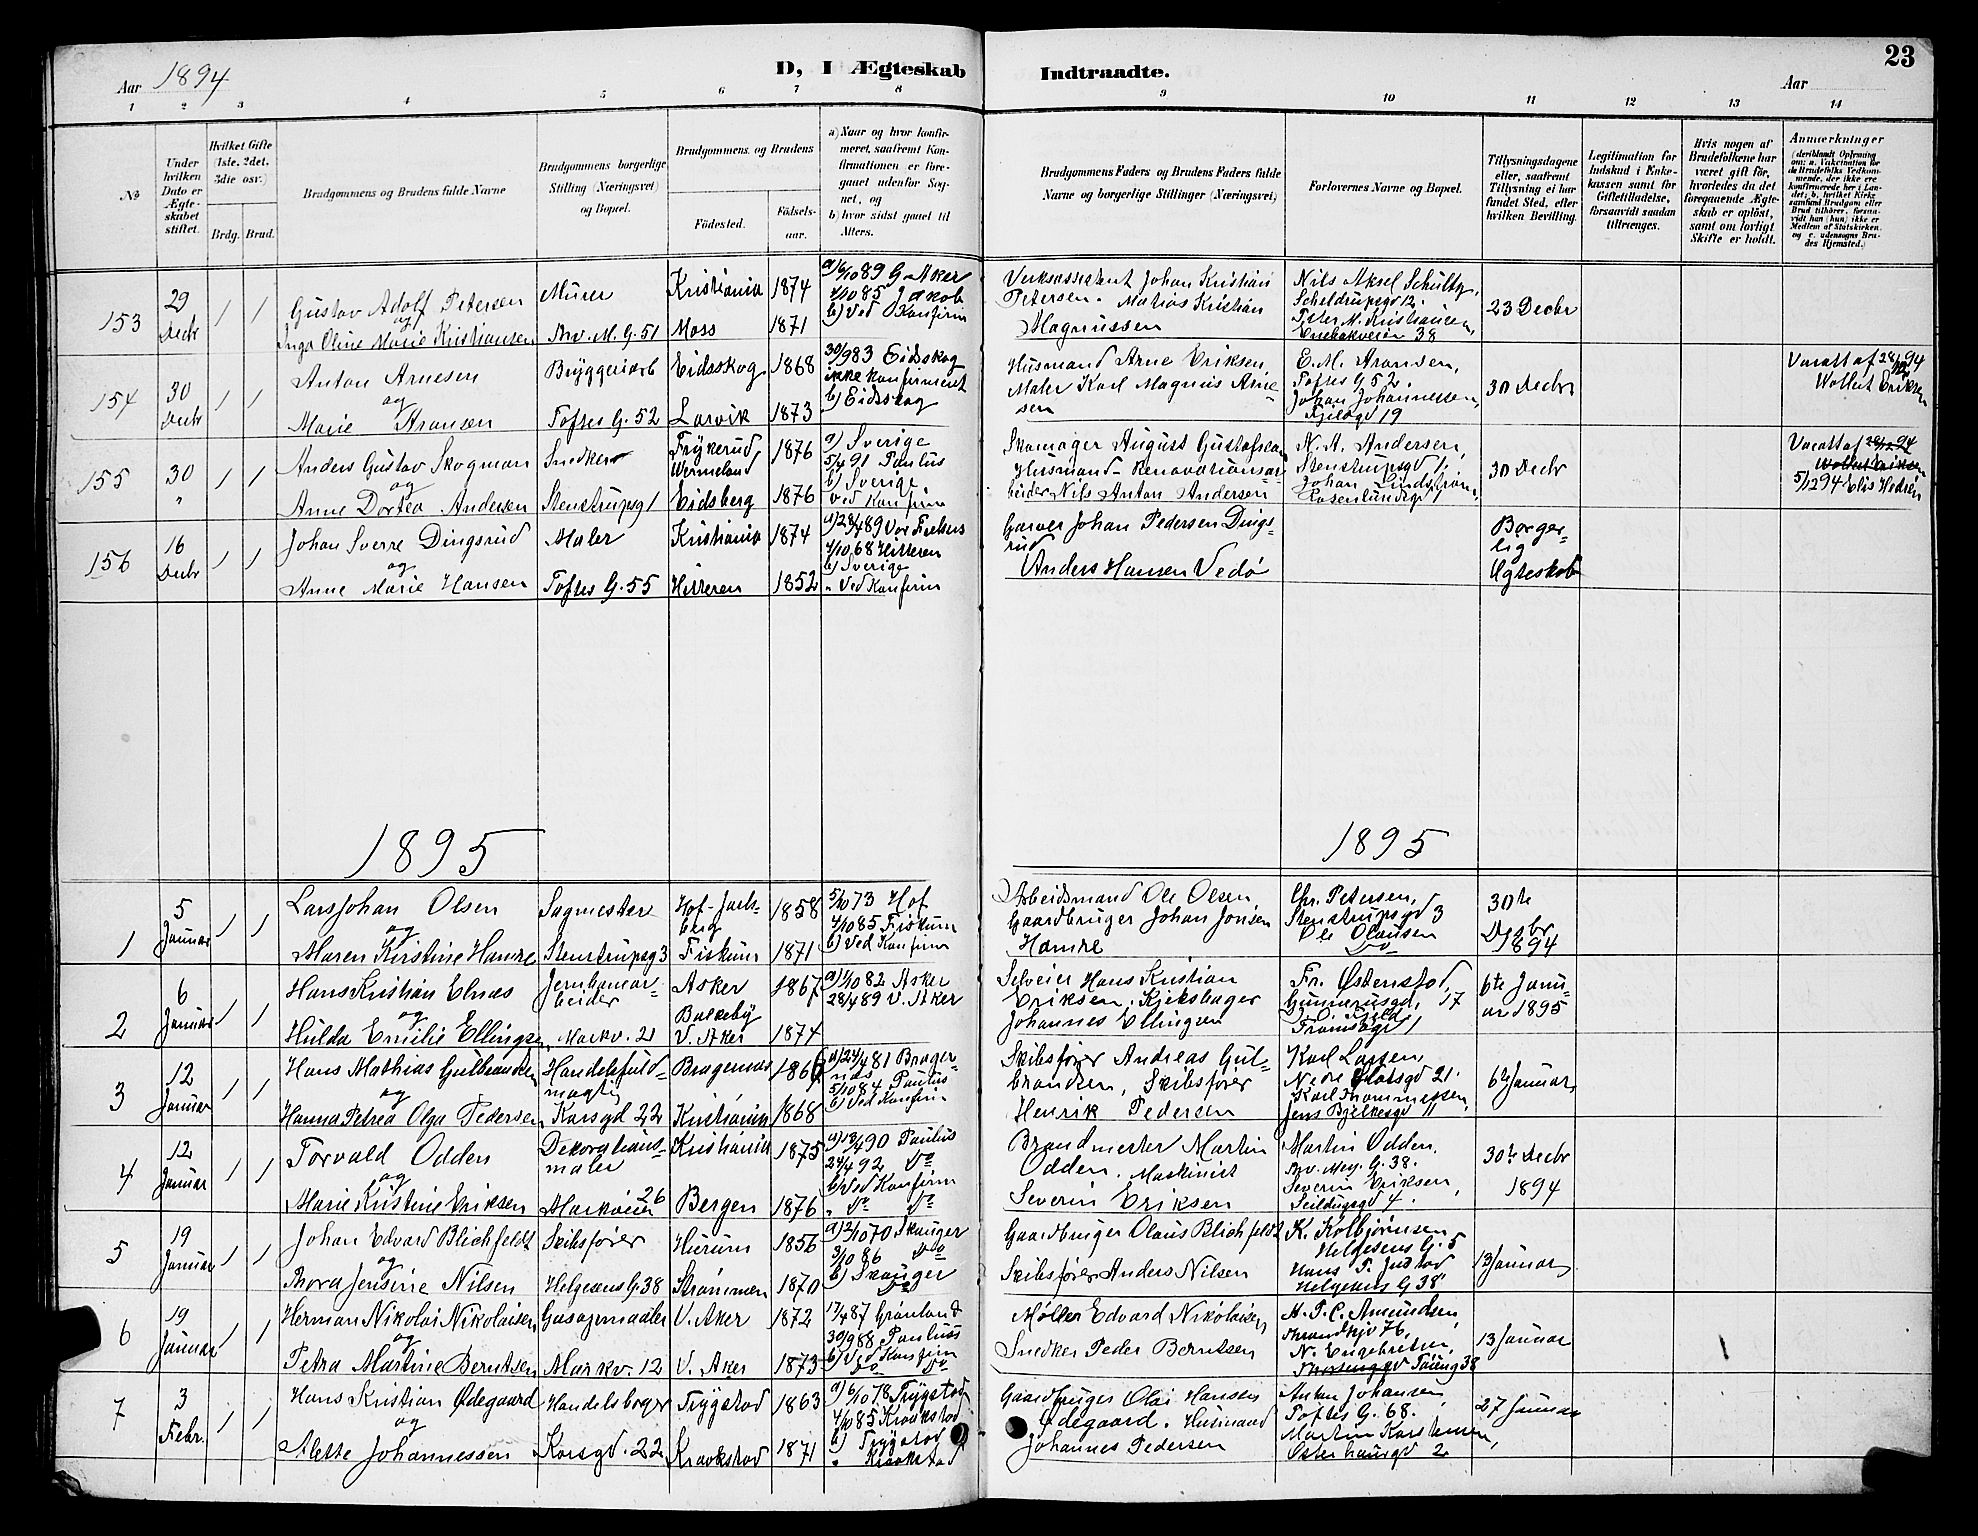 23
Aar 1894
D, I Ægteskab Indtraadte.
Aar
1 2 3 4 5 6 7 8 9 10 11 12 13 14
No
Under hvilken Dato er Ægteskabet stiftet.
Hvilket Gifte (1ste, 2det, 3die osv.)
Brdg. Brud.
Brudgommens og Brudens fulde Navne
Brudgommens borgerlige Stilling (Næringsvei) og Bopæl.
Brudgommens og Brudens
Födested. Födselsaar.
a) Naar og hvor konfirmeret, saafremt Konfirmationen er foregaaet udenfor Sognet, og
b) hvor sidst gaaet til Alters.
Brudgommens Faders og Brudens Faders fulde Navne og borgerlige Stillinger (Næringsvei)
Forlovernes Navne og Bopæl.
Tillysningsdagene eller, saafremt Tillysning ei har fundet Sted, efter hvilken Bevilling.
Legitimation for Indskud i Enkekassen samt for Giftetilladelse, forsaavidt saadan tiltrænges.
Hvis nogen af Brudefolkene har været gift för, hvorledes da det foregaaende Ægteskab er oplöst, samt om lovligt Skifte er holdt.
Anmærkninger
153 29 Decbr 1 1
Gustav Adolf Petersen
og
Inga Oline Marie Kristiansen
Murer
Nv. M. G. 51
Kristiania 1874
Moss 1871
a) 6/10 89 G. Aker
4/10 85 Jakob
b) Ved Konfirm
Verksassistent Johan Kristian
Petersen. Matias Kristian
Magnussen
Nils Aksel Schultz,
Scheldrupsgd 12.
Peter M. Kristiansen,
Enebakveien 38
23 Decbr
154 30 Decbr 1 1
Anton Arnesen
og
Marie Aronsen
Bryggeriarb
Toftes G. 52
Eidsskog 1868
Larvik 1873
30/9 83 Eidsskog
ikke konfirmeret
b) Eidsskog
Husmand Arne Eriksen,
Maler Karl Magnus Arne-
sen
E. M. Aronsen,
Toftes G 52.
Johan Johannessen,
19
30 Decbr
Vacatt af 28/12 94
Wollut Eriksen
155 30 " 1 1
Anders Gustav Skogman
og
Anne Dortea Andersen
Snedker
Stenstrupsg 1
Frykerud, Wermeland 1876
Eidsberg 1876
a) Sverige
5/4 91 Paulus
b) Sverige,
Ved Konfirm
Skomager August Gustafsson
Husmand - Renovationsar-
beider Nils Anton Andersen
N. A. Andersen,
Stenstrupsgd 1,
Johan Lindstrøm,
Rosenlundsgd 1
30 Decbr
Vacatt af 28/12 94
Wollut Eriksen
5/12 94 Elis Hedrén
156 16 Decbr 1 1
Johan Sverre Dingsrud
og
Anne Marie Hansen
Maler
Toftes G. 55
Kristiania 1874
Hitteren 1852
a) 28/4 89 Vor Frelsers
4/10 68 Hitteren
b) Sverige
" Ved Konfirm
Garver Johan Pedersen Dings-
rud
Anders Hansen Vedø
Borger-
lig
Egteskab
1895 1895
1 5 Januar 1 1
Lars Johan Olsen
og
Maren Kirstine Hamre
Sagmester
Stenstrupsg 3
Hof-Jarls-
berg 1858
Fiskum 1871
5/10 73 Hof
4/10 85 Fiskum
b) Ved Konfirm
Arbeidsmand Ole Olsen,
Gaardbruger Johan Jonsen
Hamre
Chr. Petersen,
Stenstrupsgd 3
Ole Olausen
Do
30te
Decbr
1894
2 6 Januar 1 1
Hans Kristian Elnæs
og
Hulda Emilie Ellingsen,
Jernbanear-
beider
Markv. 21
Asker 1867
Bakkeby
V. Aker 1874
a) 1/10 82 Asker
28/4 89 V. Aker
Selveier Hans Kristian
Eriksen. Kjeksbager
Johannes Ellingsen
Fr. Østenstad,
Gunnerusgd, 17
Tromsøgd 1
6te Janu-
ar 1895
3 12 Januar 1 1
Hans Mathias Gulbrandsen
og
Hanna Petrea Olga Pedersen
Handelsfuld-
mægtig
Korsgd 22
Bragernæs 1860
Kristiania 1868
a) 24/4 81 Brager-
næs
5/10 84 Paulus
b) Ved Konfirm
Skibsfører Andreas Gul-
brandsen, Skibsfører
Henrik Pedersen
Karl Larsen,
Nedre Slotsgd 21.
Karl Thommessen,
Jens Bjelkesgd 11
6te Januar
4 12 Januar 1 1
Torvald Odden
og
Marie Kristine Eriksen
Dekorations-
maler
Markveien 26
Kristiania 1875
Bergen 1876
a) 13/4 90 Paulus
24/4 92 Do
b) Ved Konfirm
" Do Do
Brandmester Martin
Odden. Maskinist
Severin Eriksen
Martin Odden,
Nv. Mey. G. 38.
Severin Eriksen,
Seildugsgd 4.
30te Decbr
1894
5 19 Januar 1 1
Johan Edvard Blichfeldt
og
Thora Jensine Nilsen
Skibsfører
Helgesens G. 38
Hurum 1856
Strømmen 1870
a) 2/10 70 Skauger
3/10 86 Do
b) Skauger
Do
Gaardbruger Olaus Blichfeldt
Skibsfører Anders Nilsen
K. Kolbjørnsen
Helgesens G. 5
Hans T. Justad
Helgesens G 38
13 Januar
6 19 Januar 1 1
Herman Nikolai Nikolaisen
og
Petra Martine Berntsen
Gasagemaaler
Markv. 12
V. Aker 1872
V. Aker 1873
17/4 87 Grønland
30/9 88 Paulus
b) Ved Konfirm
Do Do
Møller Edvard Nikolaisen
Snedker Peder Berntsen
A. P. C. Amundsen,
76,
N. Engebretsen,
Tøieng 38
13 Januar
7 3 Febr. 1 1
Hans Kristian Ødegaard
og
Mette Johannessen
Handelsborger
Korsgd. 22
Trygstad 1863
Kraakstad 1871
a) 6/10 78 Trygstad
4/10 85 Kraakstad
b) Trygstad
" Kraakstad
Gaardbruger Olai Hansen
Ødegaard. Husmand
Johannes Pedersen
Anton Johansen,
Toftes G. 68.
Martin Karstensen,
Osterhausgd 2
27 Januar